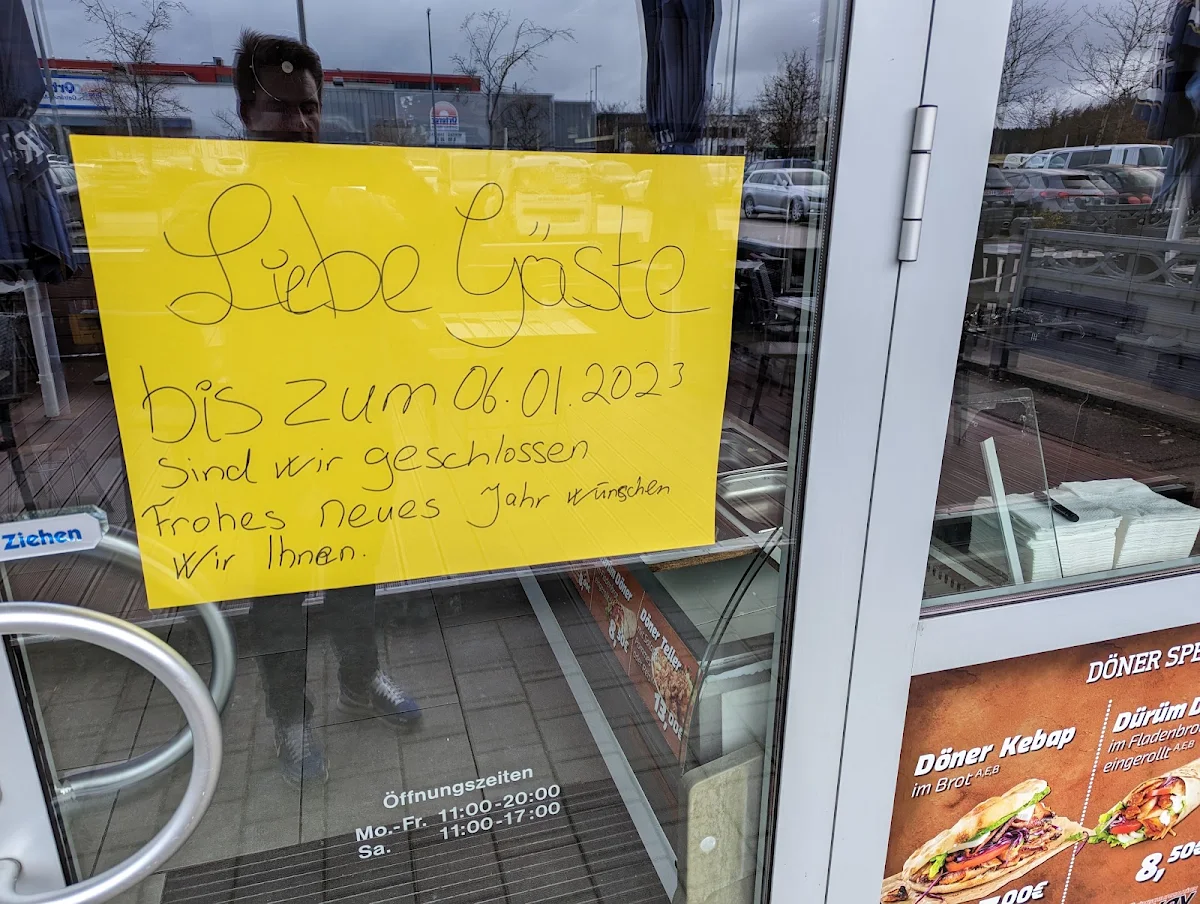 Liebe Gäste
bis zum 06.01.2023
sind wir geschlossen
Frohes neues Jahr wünschen
wir Ihnen.
Ziehen
Öffnungszeiten
Mo.-Fr. 11:00-20:00
Sa. 11:00-17:00
Döner Teller
13,00€
DÖNER
Döner Kebap
im Brot A,E,B
00€
Dürüm
im Fladenbrot
eingerollt A,E,B
8,50€